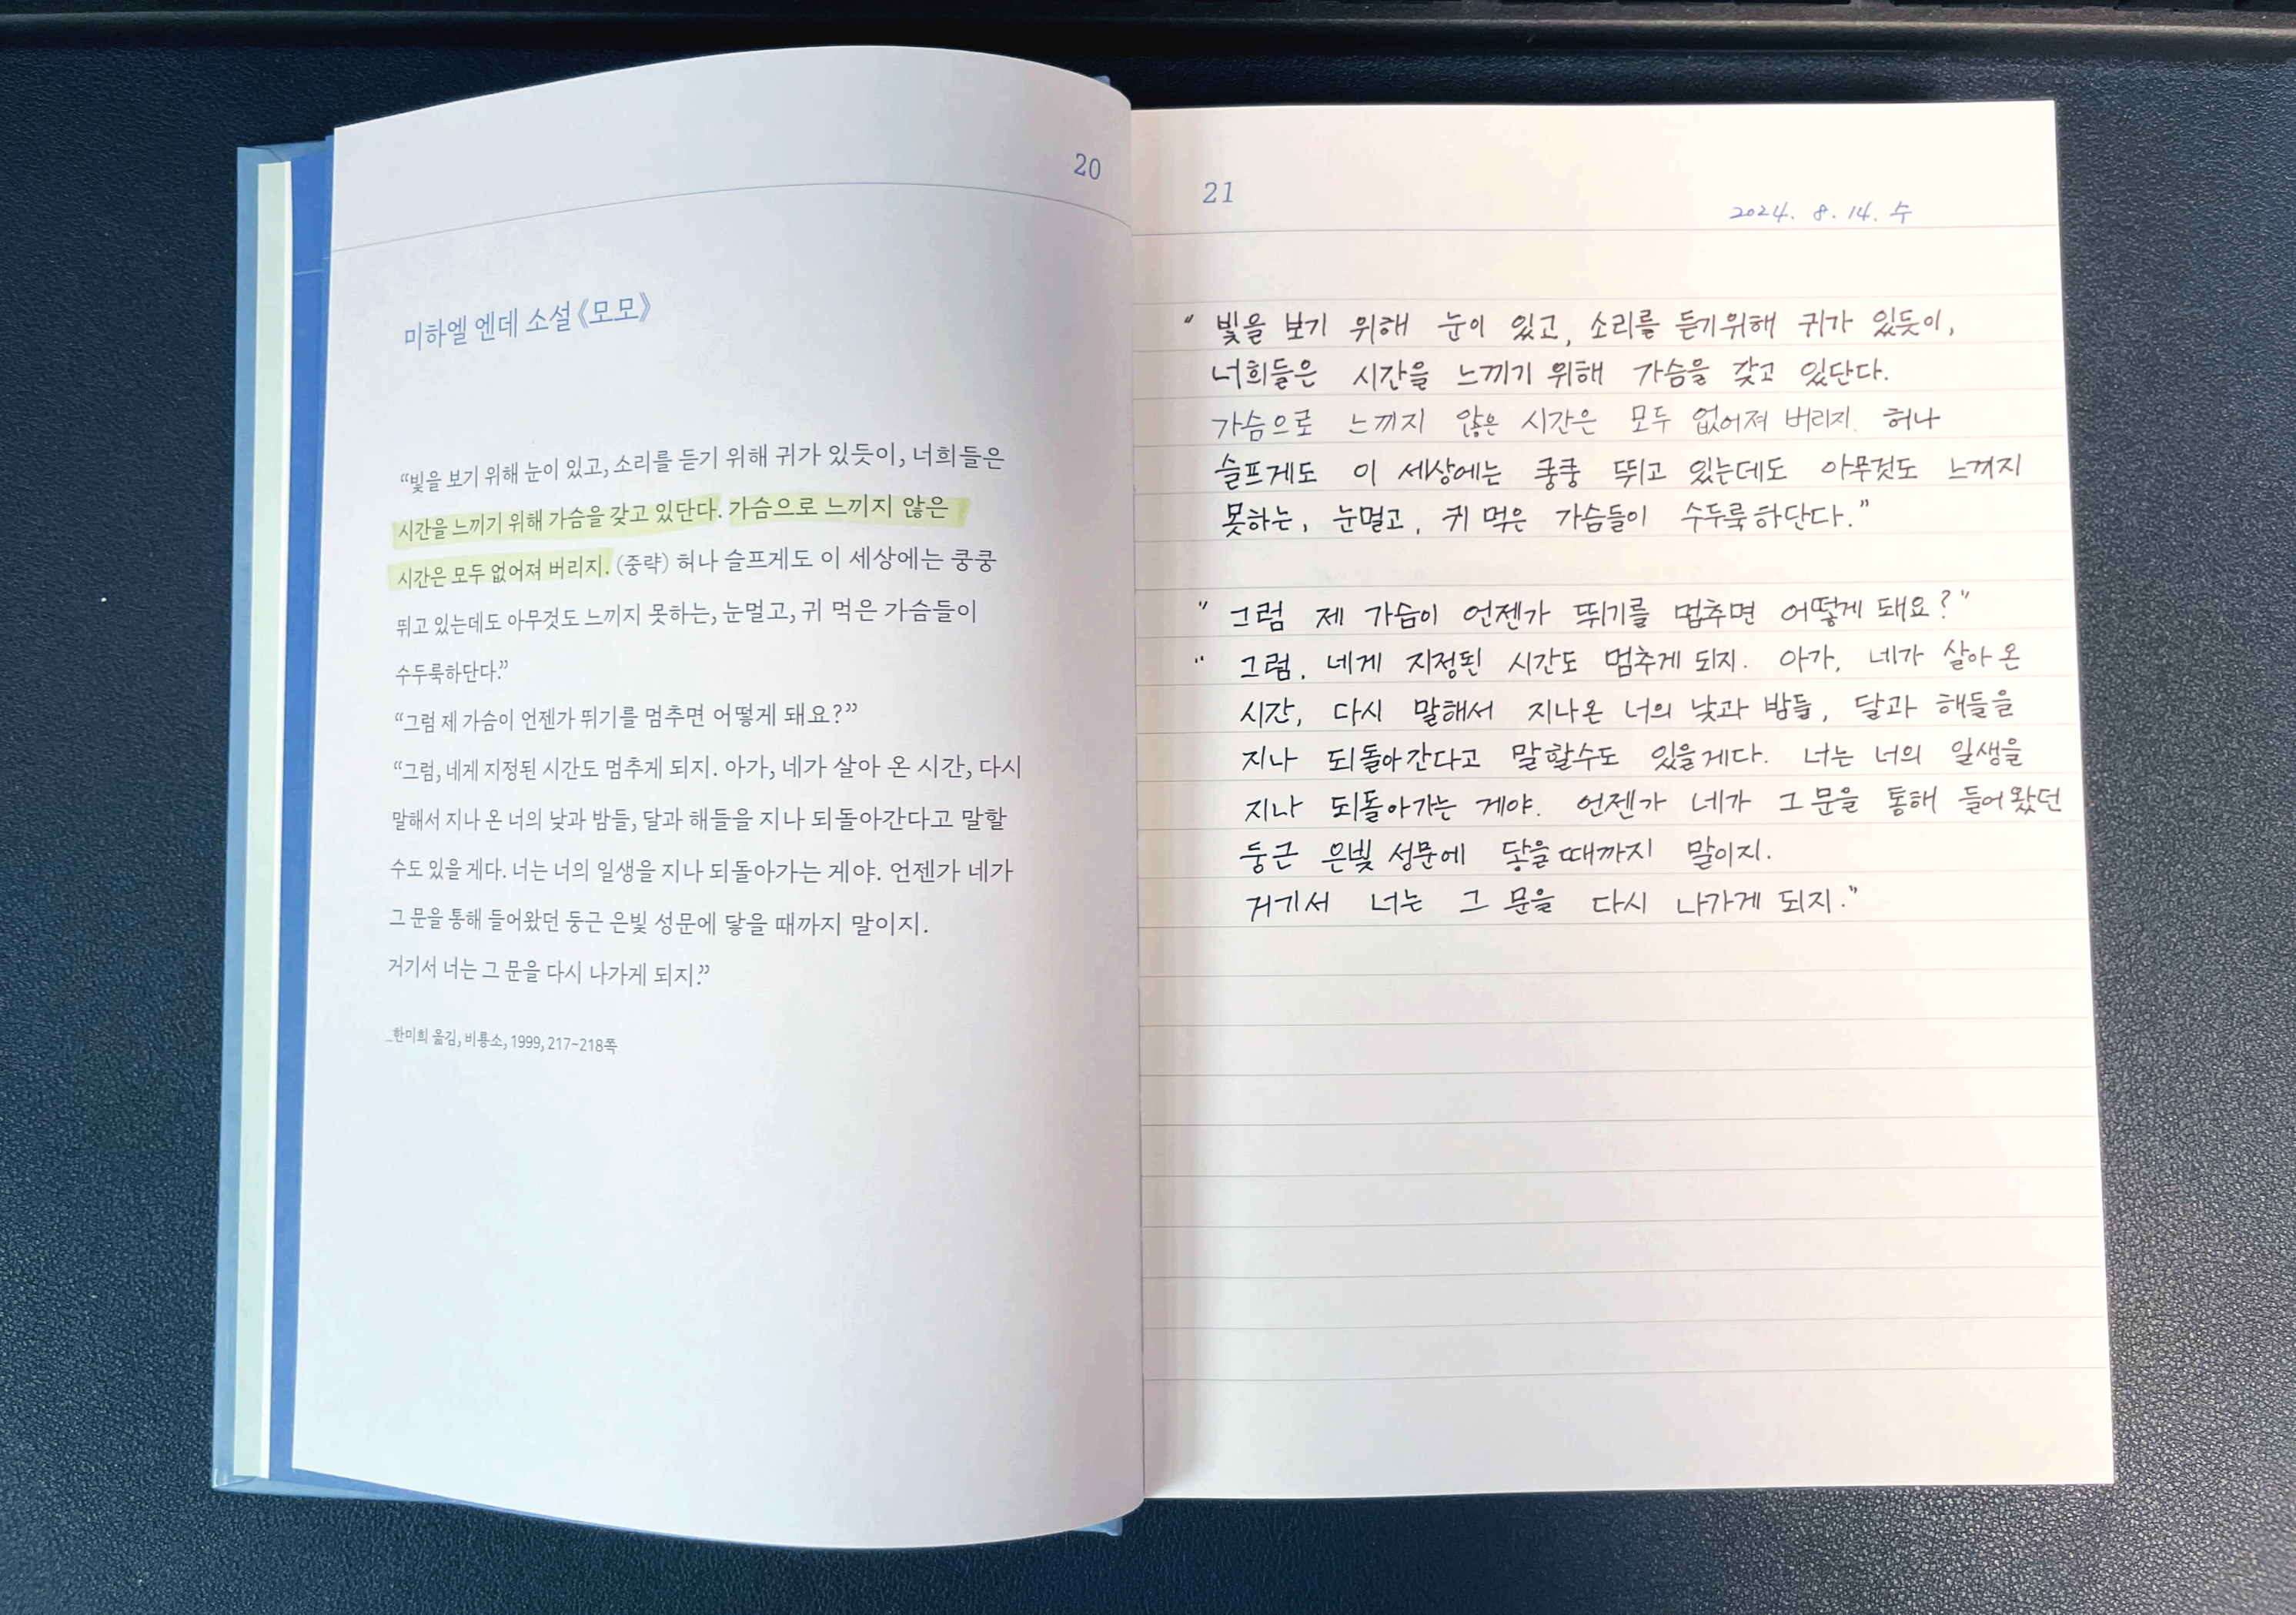 20
미하엘 엔데 소설 《모모》
“빛을 보기 위해 눈이 있고, 소리를 듣기 위해 귀가 있듯이, 너희들은
시간을 느끼기 위해 가슴을 갖고 있단다. 가슴으로 느끼지 않은
시간은 모두 없어져 버리지. (중략) 허나 슬프게도 이 세상에는 쿵쿵
뛰고 있는데도 아무것도 느끼지 못하는, 눈멀고, 귀 먹은 가슴들이
수두룩하단다.”
“그럼 제 가슴이 언젠가 뛰기를 멈추면 어떻게 돼요?”
“그럼, 네게 지정된 시간도 멈추게 되지. 아가, 네가 살아 온 시간, 다시
말해서 지나 온 너의 낮과 밤들, 달과 해들을 지나 되돌아간다고 말할
수도 있을 게다. 너는 너의 일생을 지나 되돌아가는 게야. 언젠가 네가
그 문을 통해 들어왔던 둥근 은빛 성문에 닿을 때까지 말이지.
거기서 너는 그 문을 다시 나가게 되지.”
_한미희 옮김, 비룡소, 1999, 217~218쪽
21
2024. 8. 14. 수
“ 빛을 보기 위해 눈이 있고, 소리를 듣기위해 귀가 있듯이,
너희들은 시간을 느끼기 위해 가슴을 갖고 있단다.
가슴으로 느끼지 않은 시간은 모두 없어져 버리지. 허나
슬프게도 이 세상에는 쿵쿵 뛰고 있는데도 아무것도 느껴지
못하는, 눈멀고, 귀 먹은 가슴들이 수두룩하단다.”
“ 그럼 제 가슴이 언젠가 뛰기를 멈추면 어떻게 돼요?”
“ 그럼, 네게 지정된 시간도 멈추게 되지. 아가, 네가 살아 온
시간, 다시 말해서 지나온 너의 낮과 밤들, 달과 해들을
지나 되돌아간다고 말할수도 있을게다. 너는 너의 일생을
지나 되돌아가는 게야. 언젠가 네가 그 문을 통해 들어왔던
둥근 은빛 성문에 닿을때까지 말이지.
거기서 너는 그 문을 다시 나가게 되지.”